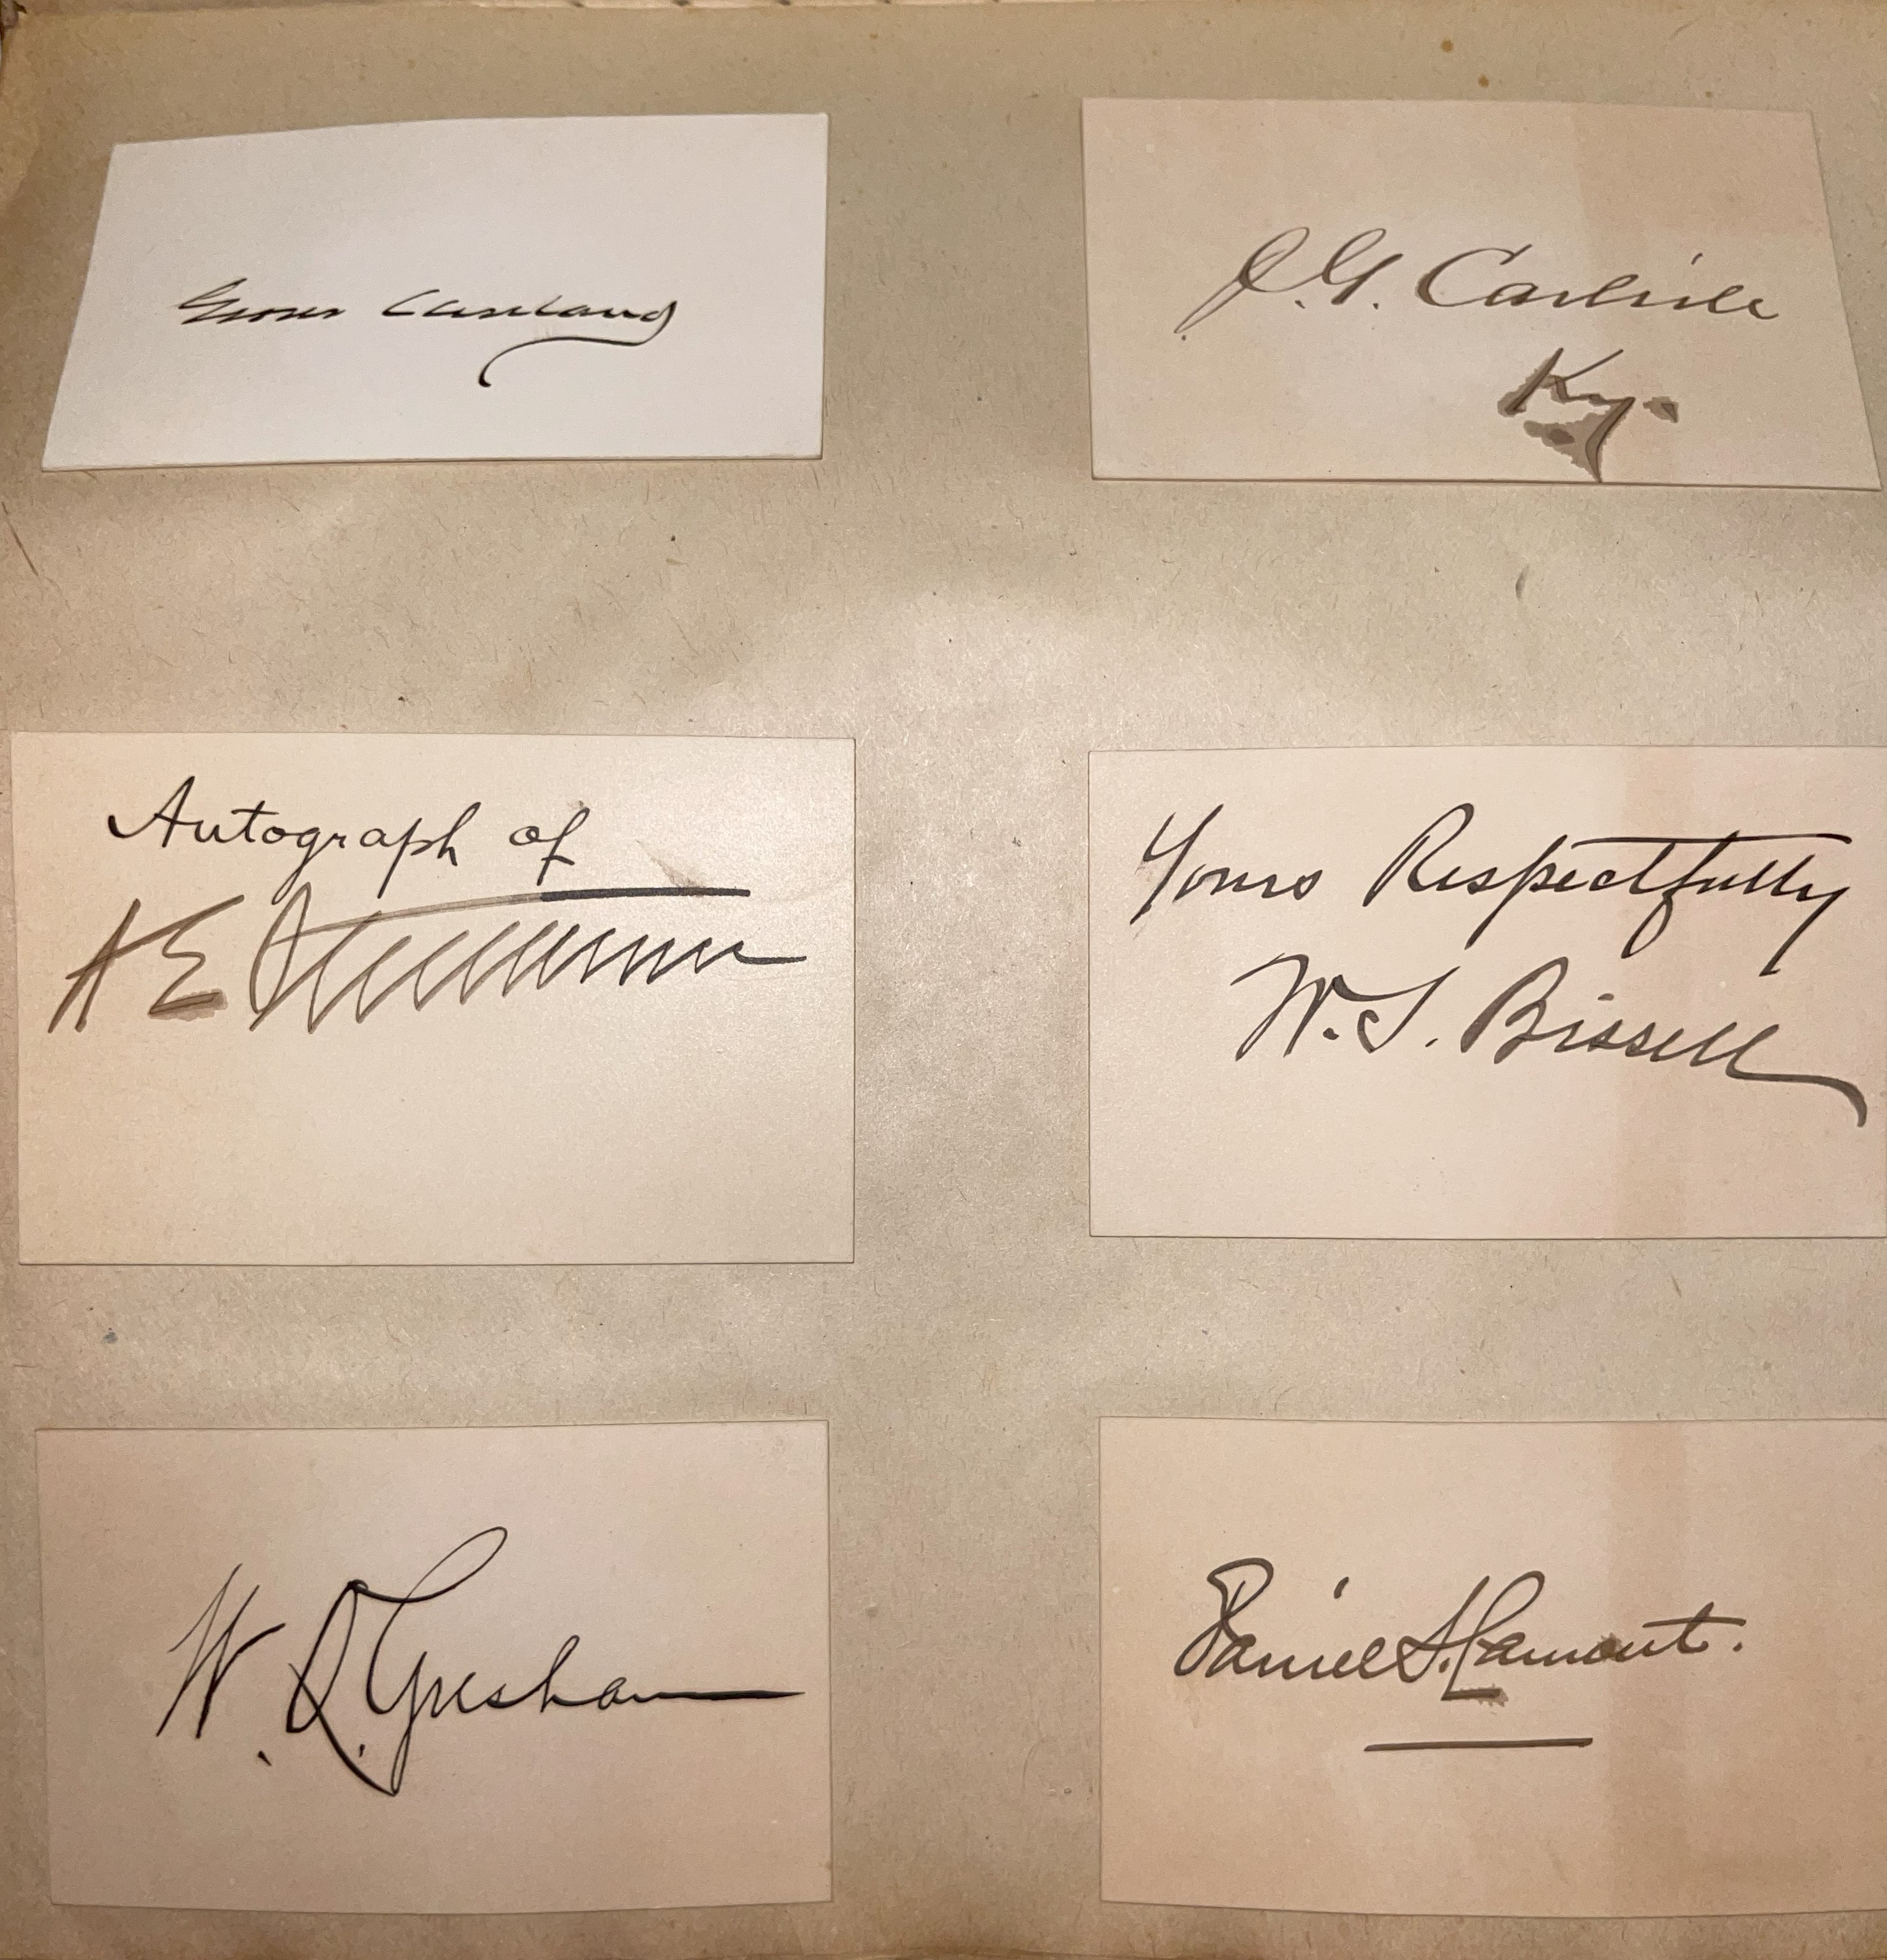 Grover Cleveland
J. G. Carlisle
Ky.
Autograph of
A E Stevenson
Yours Respectfully
W. S. Bissell
W. Q. Gresham
Daniel S. Lamont.